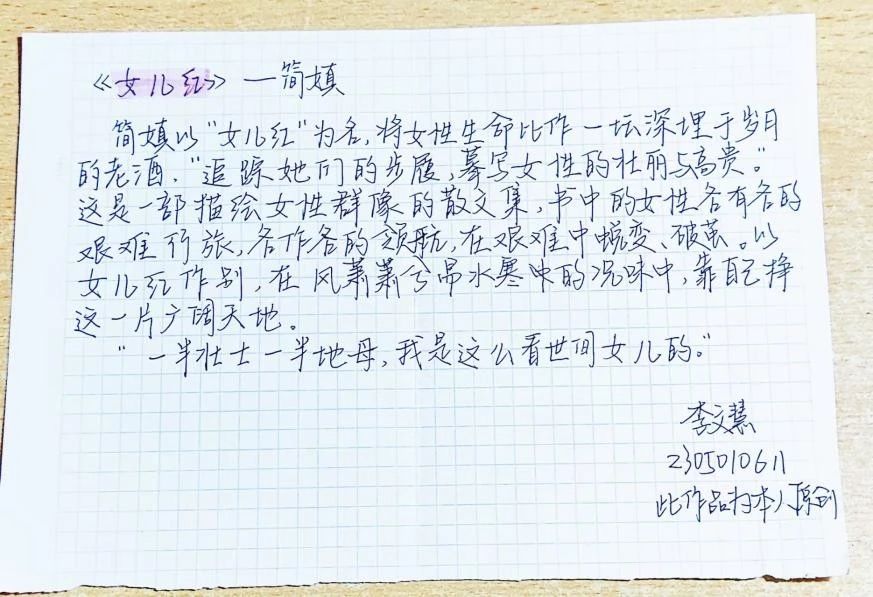 《女儿红》—简媜
简媜以"女儿红"为名,将女性生命比作一坛深埋于岁月
的老酒,"追踪她们的步履,摹写女性的壮丽与高贵。"
这是一部描绘女性群像的散文集,书中的女性各有各的
艰难行旅,各作各的领航,在艰难中蜕变、破茧。以
女儿红作别,在风萧萧兮易水寒中的况味中,靠自己挣
这一片广阔天地。
"一半壮士一半地母,我是这么看世间女儿的。"
李文慧
2305010611
此作品为本人原创